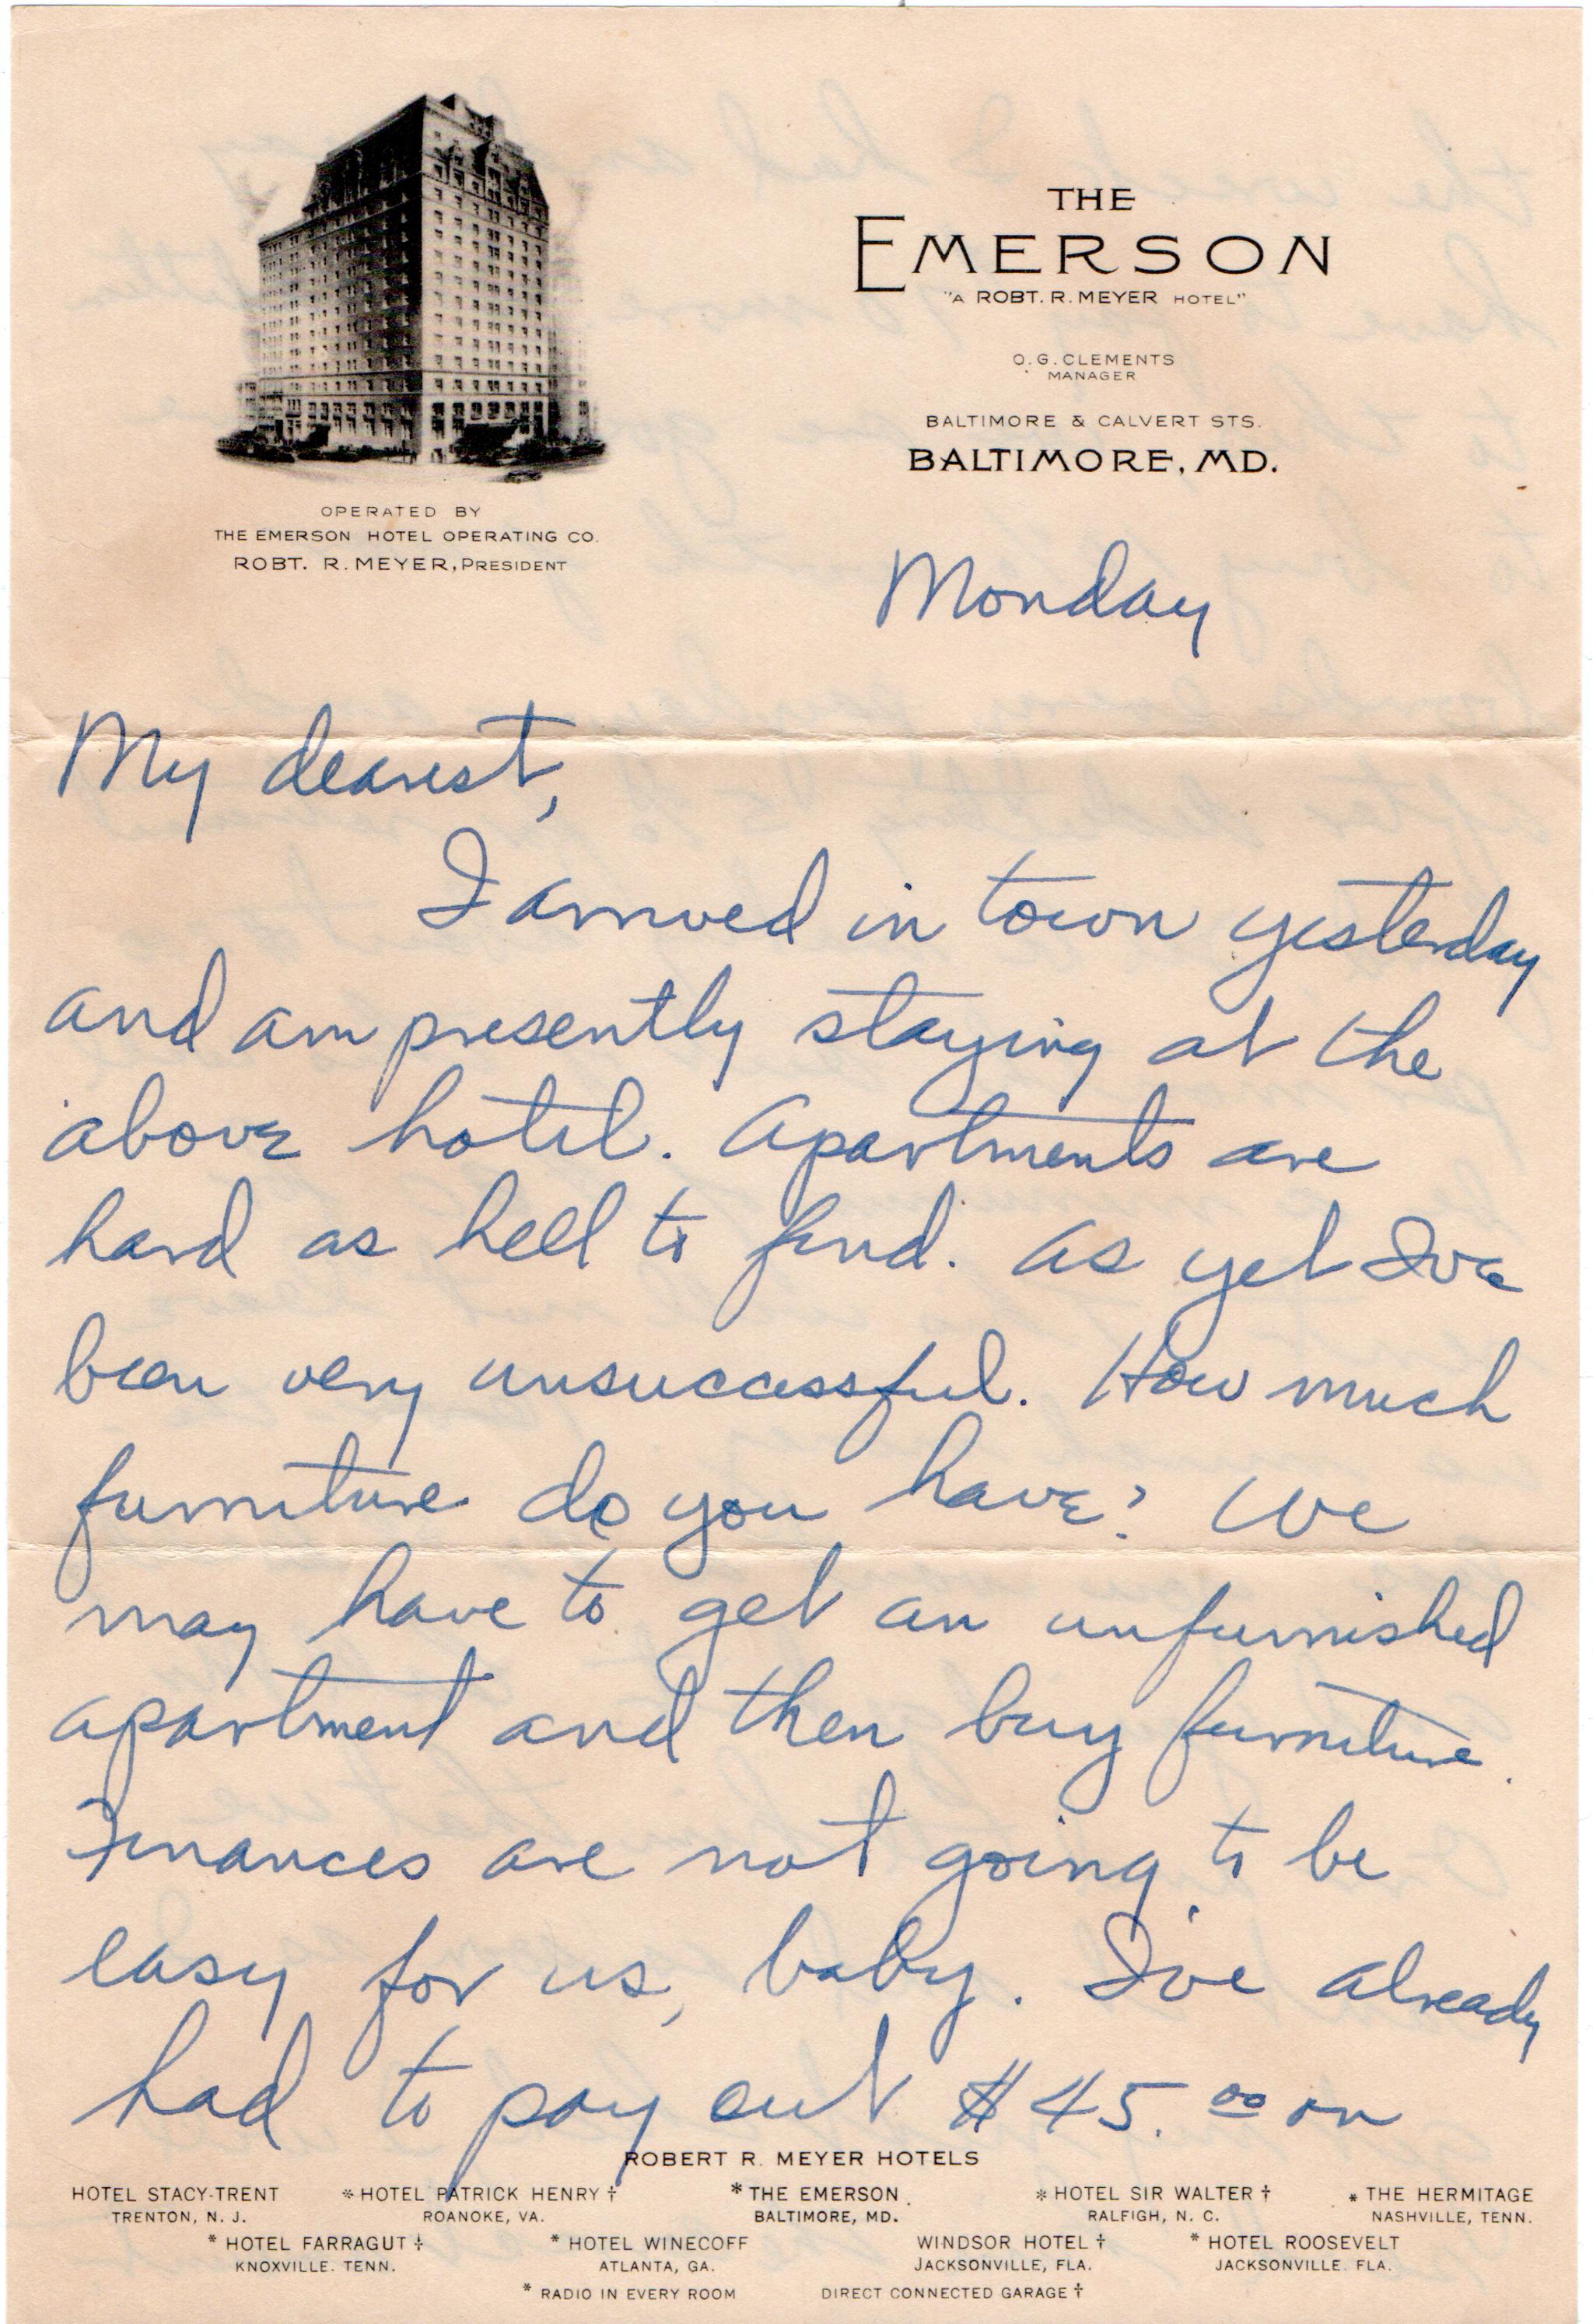 THE
EMERSON
"A ROBT. R. MEYER HOTEL"
O. G. CLEMENTS
MANAGER
BALTIMORE & CALVERT STS.
BALTIMORE, MD.
OPERATED BY
THE EMERSON HOTEL OPERATING CO.
ROBT. R. MEYER, PRESIDENT
Monday
My dearest,
I arrived in town yesterday
and am presently staying at the
above hotel. Apartments are
hard as hell to find. As yet Ive
been very unsuccessful. How much
furniture do you have? We
may have to get an unfurnished
apartment and then buy furniture.
Finances are not going to be
easy for us, baby. I've already
had to pay out $45.00 on
ROBERT R. MEYER HOTELS
HOTEL STACY-TRENT * HOTEL PATRICK HENRY † * THE EMERSON * HOTEL SIR WALTER † * THE HERMITAGE
TRENTON, N. J. ROANOKE, VA. BALTIMORE, MD. RALFIGH, N. C. NASHVILLE, TENN.
* HOTEL FARRAGUT † * HOTEL WINECOFF WINDSOR HOTEL † * HOTEL ROOSEVELT
KNOXVILLE. TENN. ATLANTA, GA. JACKSONVILLE, FLA. JACKSONVILLE. FLA.
* RADIO IN EVERY ROOM DIRECT CONNECTED GARAGE †